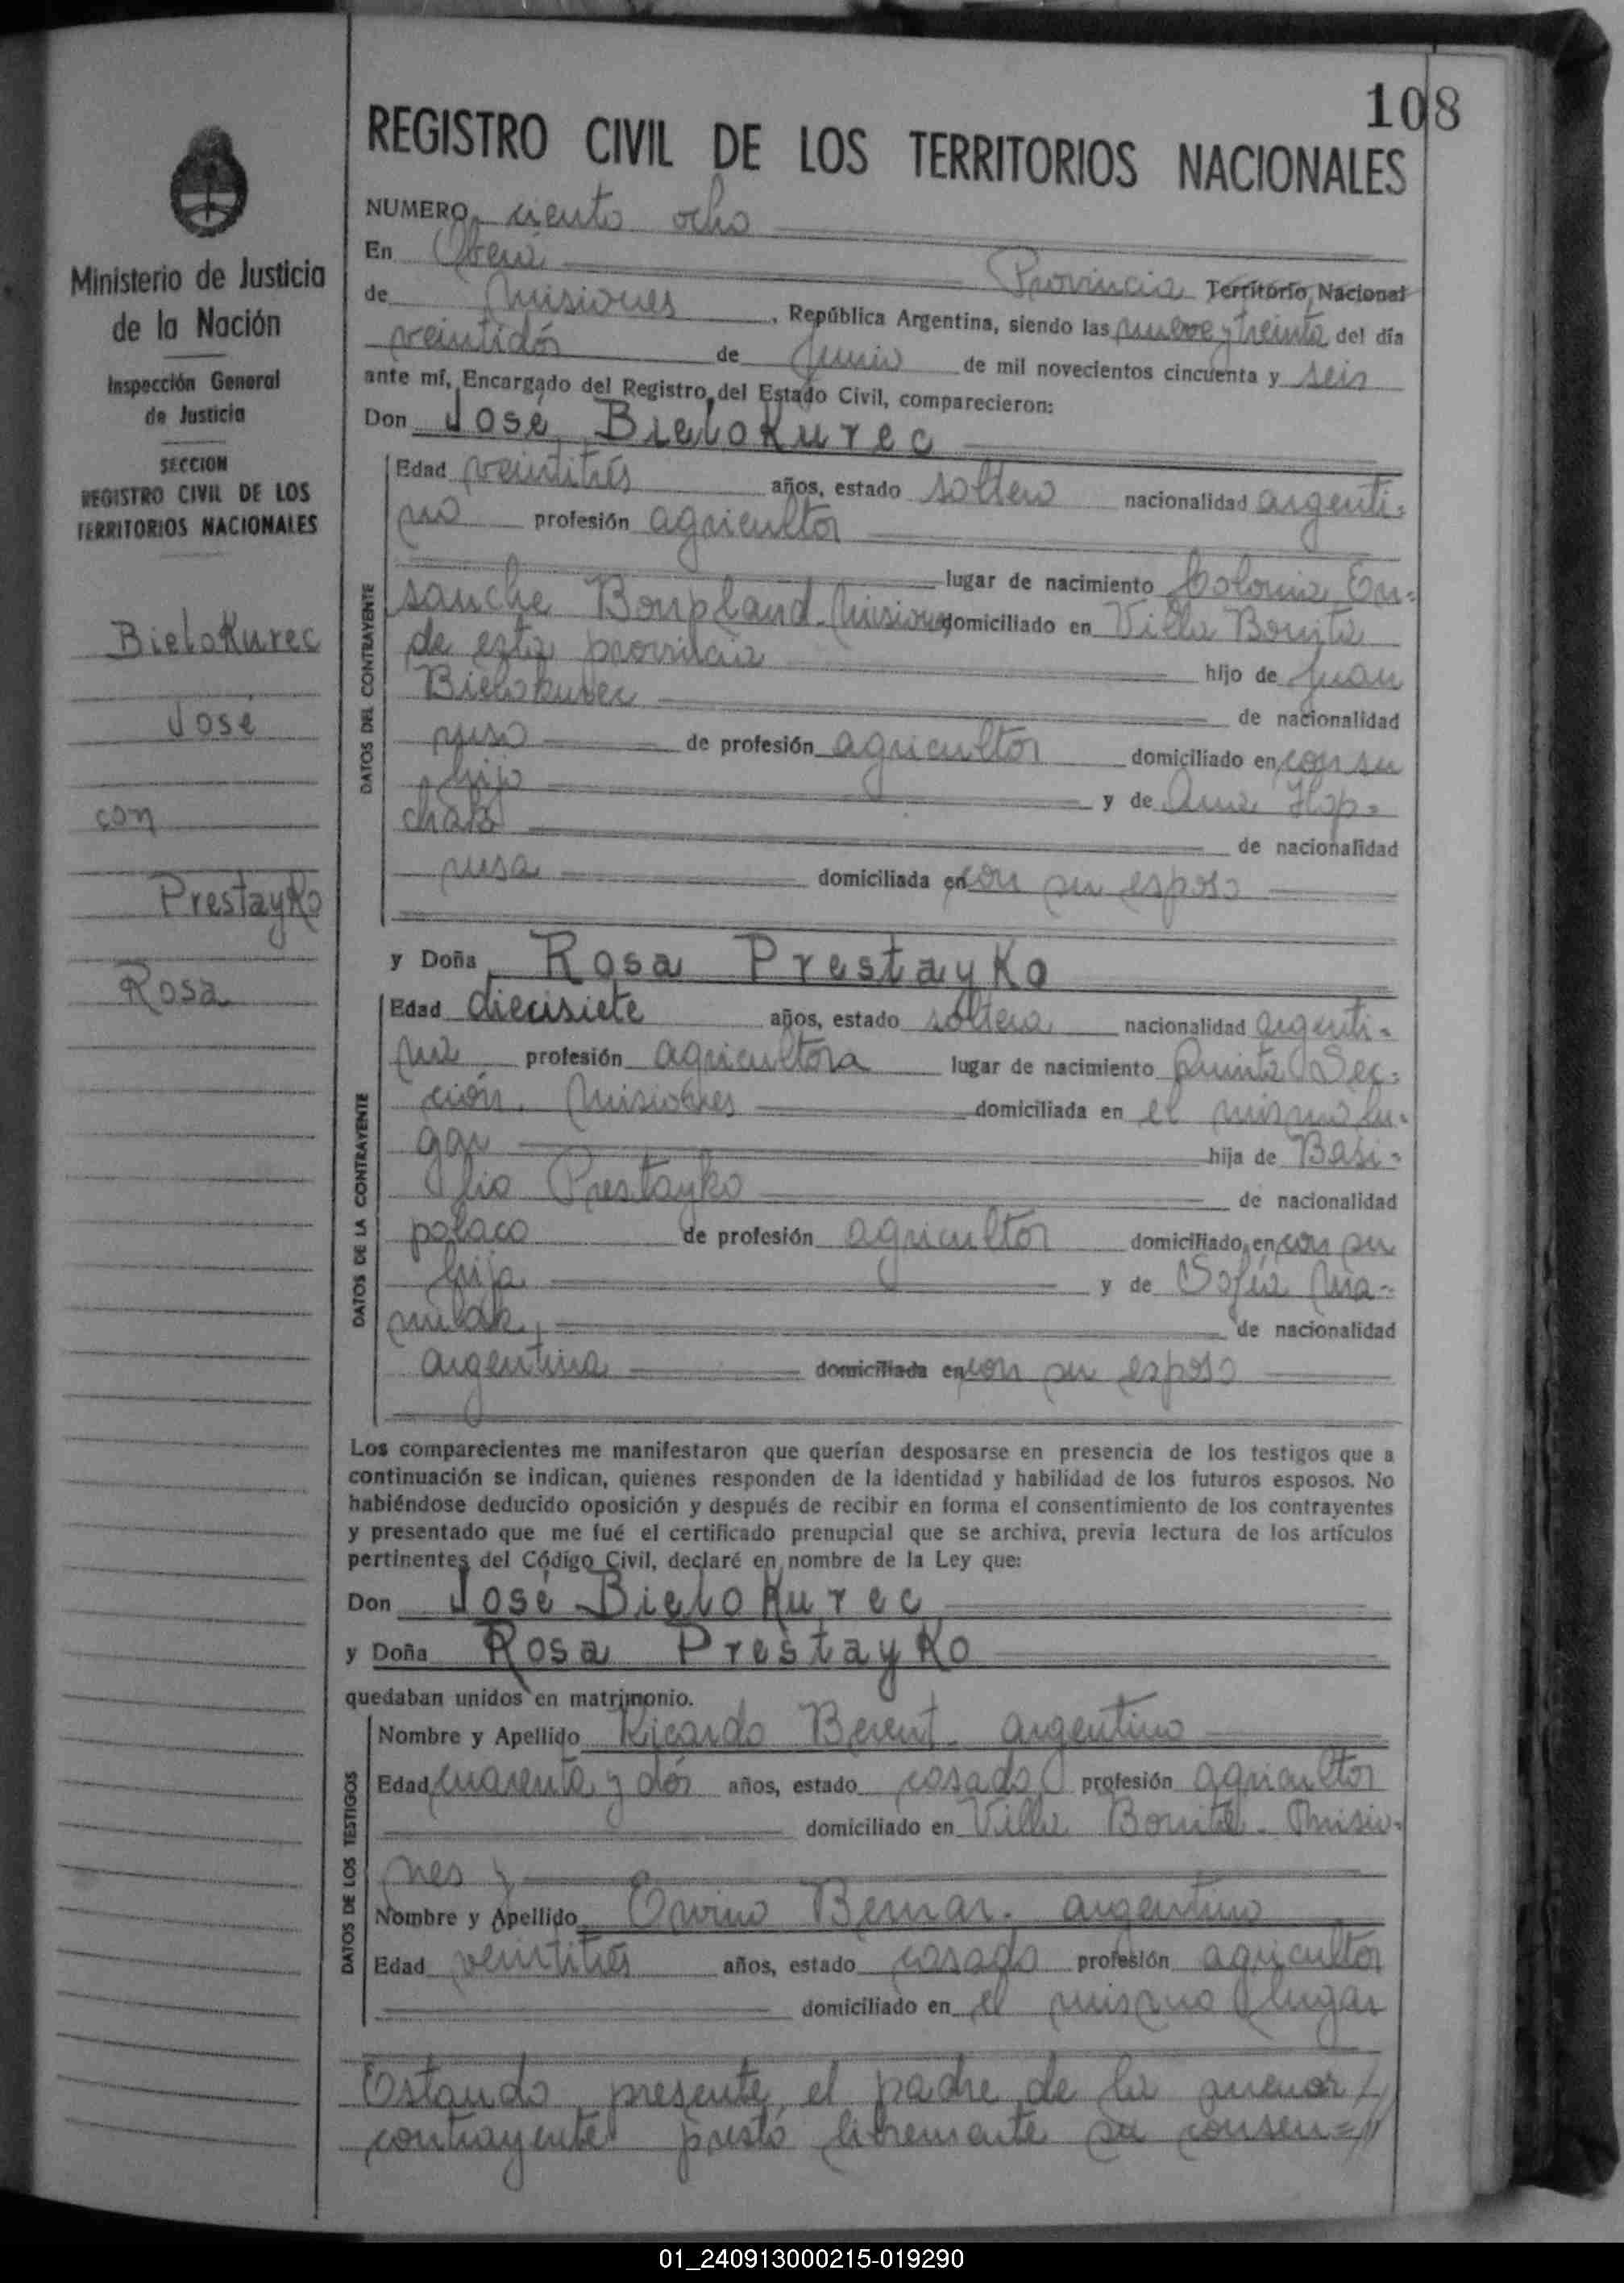 108
REGISTRO CIVIL DE LOS TERRITORIOS NACIONALES
Ministerio de Justicia
de la Nación
Inspección General
de Justicia
SECCION
REGISTRO CIVIL DE LOS
TERRITORIOS NACIONALES
Bielokurec
José
con
Prestayko
Rosa
NUMERO ciento ocho
En Oberá Provincia Territorio Nacional
de Misiones, República Argentina, siendo las nueve y treinta del día
veintidós de Junio de mil novecientos cincuenta y seis
ante mí, Encargado del Registro del Estado Civil, comparecieron:
Don José Bielokurec
DATOS DEL CONTRAYENTE
Edad veintitrés años, estado soltero nacionalidad argenti-
no profesión agricultor
lugar de nacimiento Colonia En-
sanche Bonpland. Misiones domiciliado en Villa Bonita
de esta provincia hijo de Juan
Bielokurec de nacionalidad
ruso de profesión agricultor domiciliado en con su
hijo y de Ana Hop-
de nacionalidad
rusa domiciliada en con su esposo
y Doña Rosa Prestayko
DATOS DE LA CONTRAYENTE
Edad diecisiete años, estado soltera nacionalidad argenti-
na profesión agricultora lugar de nacimiento Quinta Sec-
ción. Misiones domiciliada en el mismo lu-
gar hija de Basi-
lio Prestayko de nacionalidad
polaco de profesión agricultor domiciliado en con su
hija y de Sofía
de nacionalidad
argentina domiciliada en con su esposo
Los comparecientes me manifestaron que querían desposarse en presencia de los testigos que a
continuación se indican, quienes responden de la identidad y habilidad de los futuros esposos. No
habiéndose deducido oposición y después de recibir en forma el consentimiento de los contrayentes
y presentado que me fué el certificado prenupcial que se archiva, previa lectura de los artículos
pertinentes del Código Civil, declaré en nombre de la Ley que:
Don José Bielokurec
y Doña Rosa Prestayko
quedaban unidos en matrimonio.
DATOS DE LOS TESTIGOS
Nombre y Apellido Ricardo Berent. argentino
Edad cuarenta y dós años, estado casado profesión agricultor
domiciliado en Villa Bonita. Misio-
nes y
Nombre y Apellido argentino
Edad veintitrés años, estado casado profesión agricultor
domiciliado en el mismo lugar
Estando presente el padre de la menor //
contrayente prestó libremente su consen=//
01_240913000215-019290